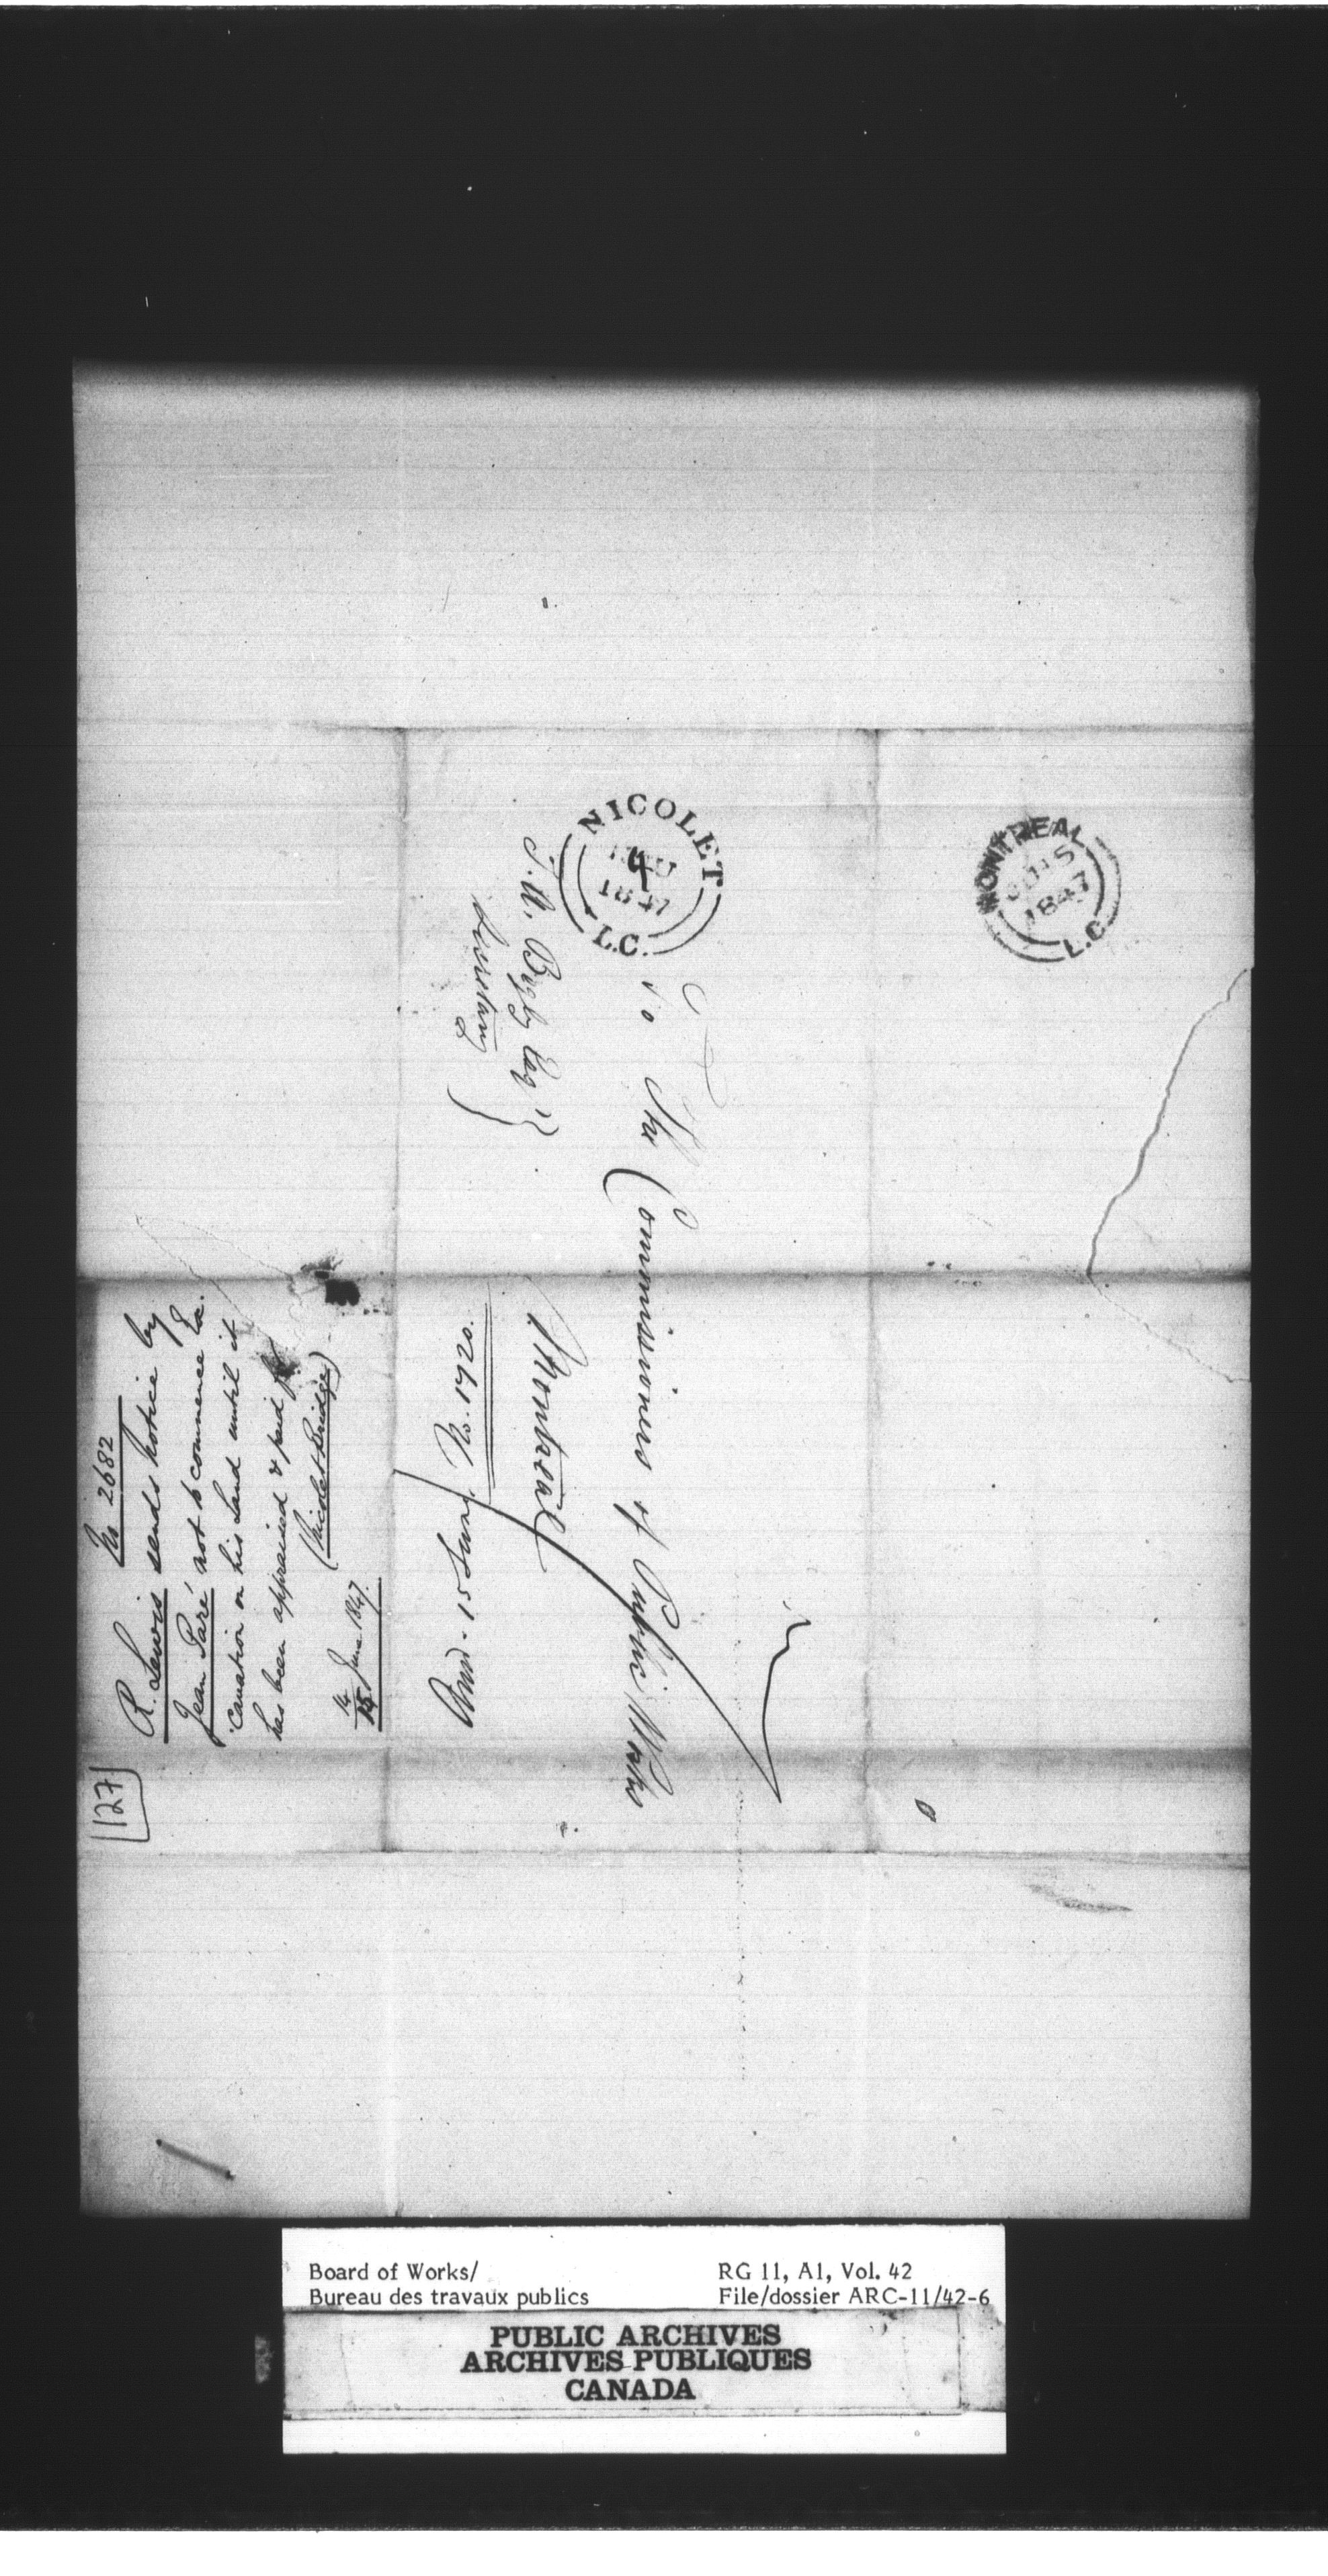 NICOLET
4
1847
L.C.
MONTREAL
JU 15
1847
L.C.
To The Commissioners of Public Works
Montreal
T. A. Begly Esqr
Secretary
No 2682
R. Lewis sends notice by
Jean Paré not to commence Ex-
cavation on his Land until it
has been appraised & paid for.
(Nicolet Bridge)
14
15 June 1847.
Answd. 15 June, No. 1920.
127
Board of Works/
Bureau des travaux publics
RG 11, A1, Vol. 42
File/dossier ARC-11/42-6
PUBLIC ARCHIVES
ARCHIVES PUBLIQUES
CANADA